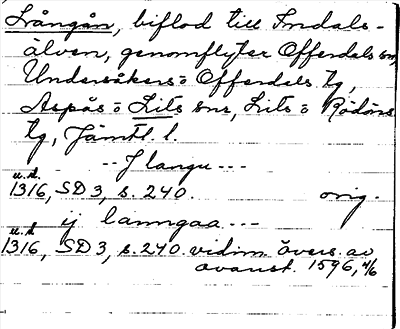 Långån, biflod till Indals-
älven, genomflyter Offerdals sn,
Undersåkers o Offerdals tg,
Aspås o Lits snr, Lits o Rödöns
tg, Jämtl. l.
-- J langu ---
u.d.
1316, SD 3, s. 240. orig.
ij lanngaa ---
u.d.
1316, SD 3, s. 240. vidim. övers. av
ovanst. 1596, 4/6